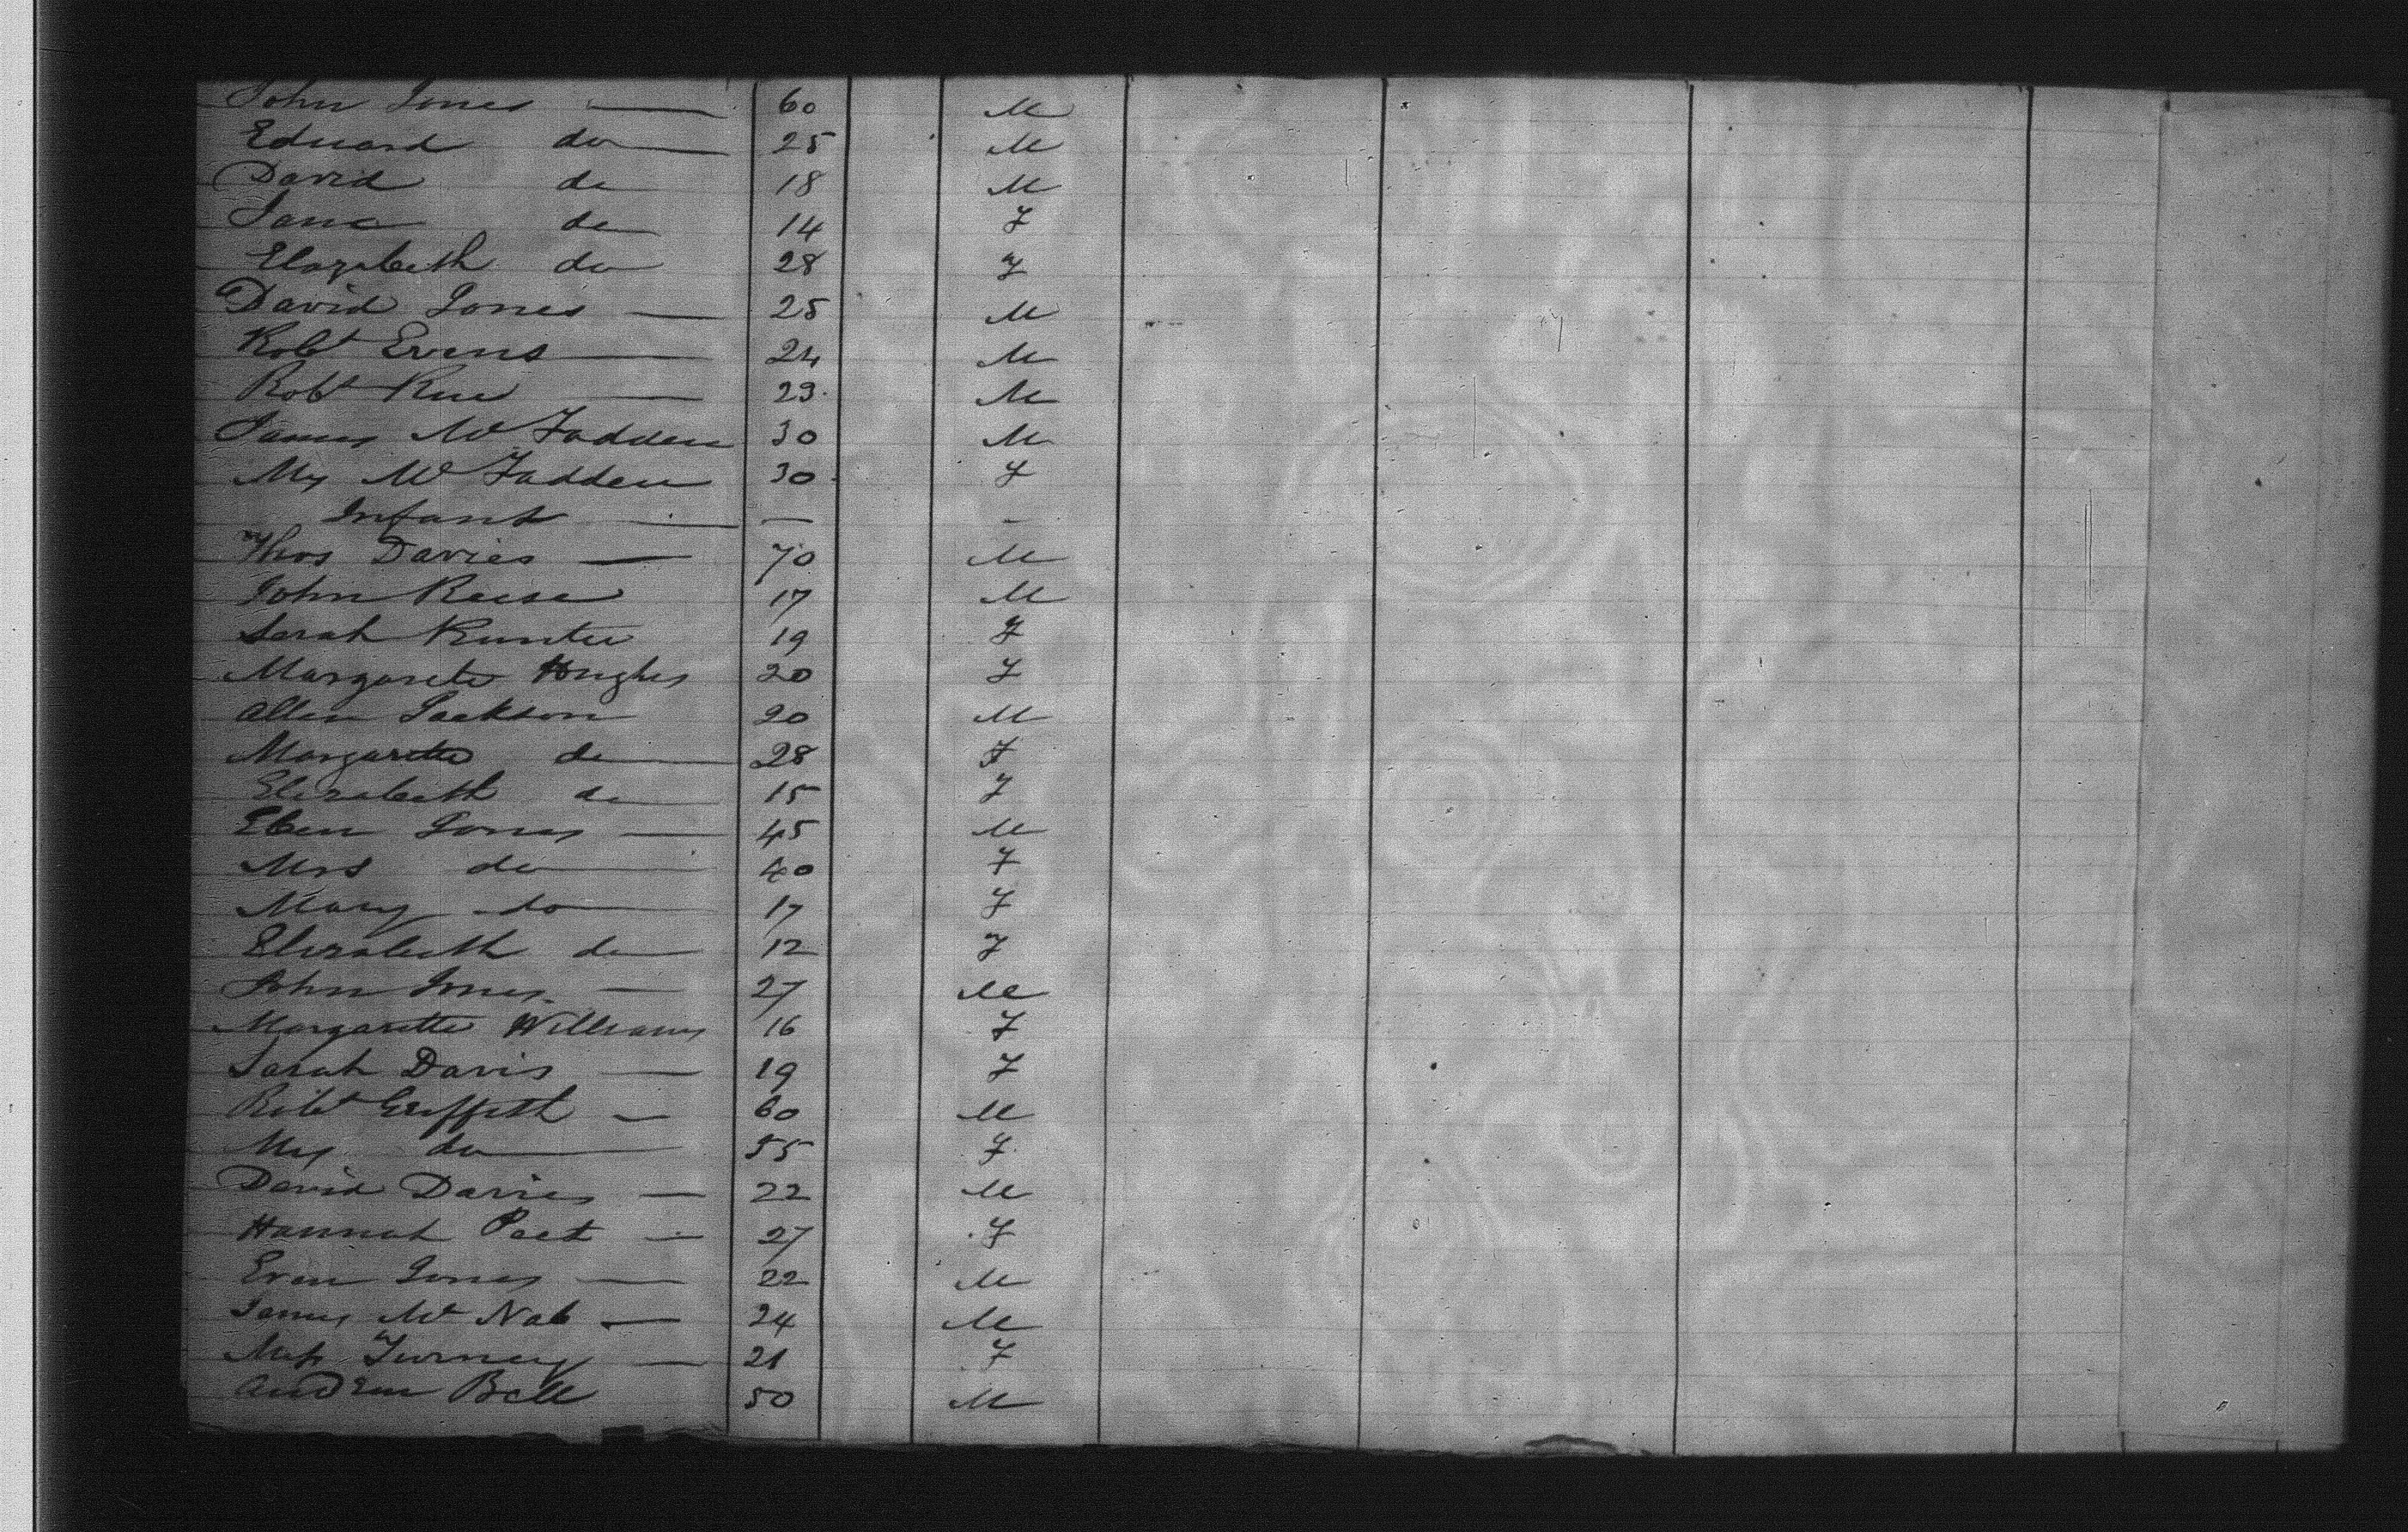 John Jones — 60 M
Edward do — 25 M
David do 18 M
Jane do 14 F
Elizabeth do 28 F
David Jones — 25 M
Robt Evens — 24 M
Robt — 23 M
James McFadden 30 M
Mrs McFadden 30 F
Infant — — —
Thos Davies — 70 M
John Reese 17 M
Sarah 19 F
Margarete Hughes 20 F
Allen Jackson 20 M
Margarette do — 28 F
Elizabeth do 15 F
Eben Jones — 45 M
Mrs do — 40 F
Mary do — 17 F
Elizabeth do 12 F
John Jones — 27 M
Margarette Williams 16 F
Sarah Davis — 19 F
Robt Griffeth — 60 M
Mrs do — 55 F
David Davies — 22 M
Hannah — 27 F
Evan Jones — 22 M
James McNab — 24 M
Miss Turney — 21 F
Andrew Bell 50 M